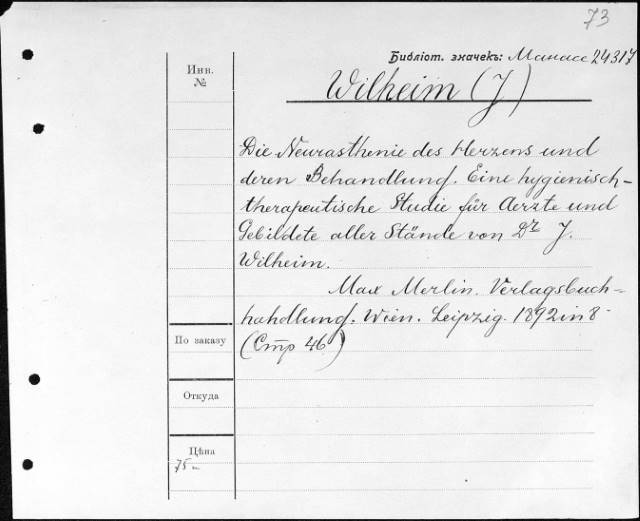 73
Библіот. значекъ: Манасе 24317
Инв.
№
Wilheim (J)
Die Neurasthenie des Herzens und
deren Behandlung. Eine hygienisch-
therapeutische Studie für Aerzte und
Gebildete aller Stände von Dr J.
Wilheim.
Max Merlin. Verlagsbuch=
hahdlung. Wien. Leipzig. 1892 in 8-
(Стр 46)
По заказу
Откуда
Цѣна
75